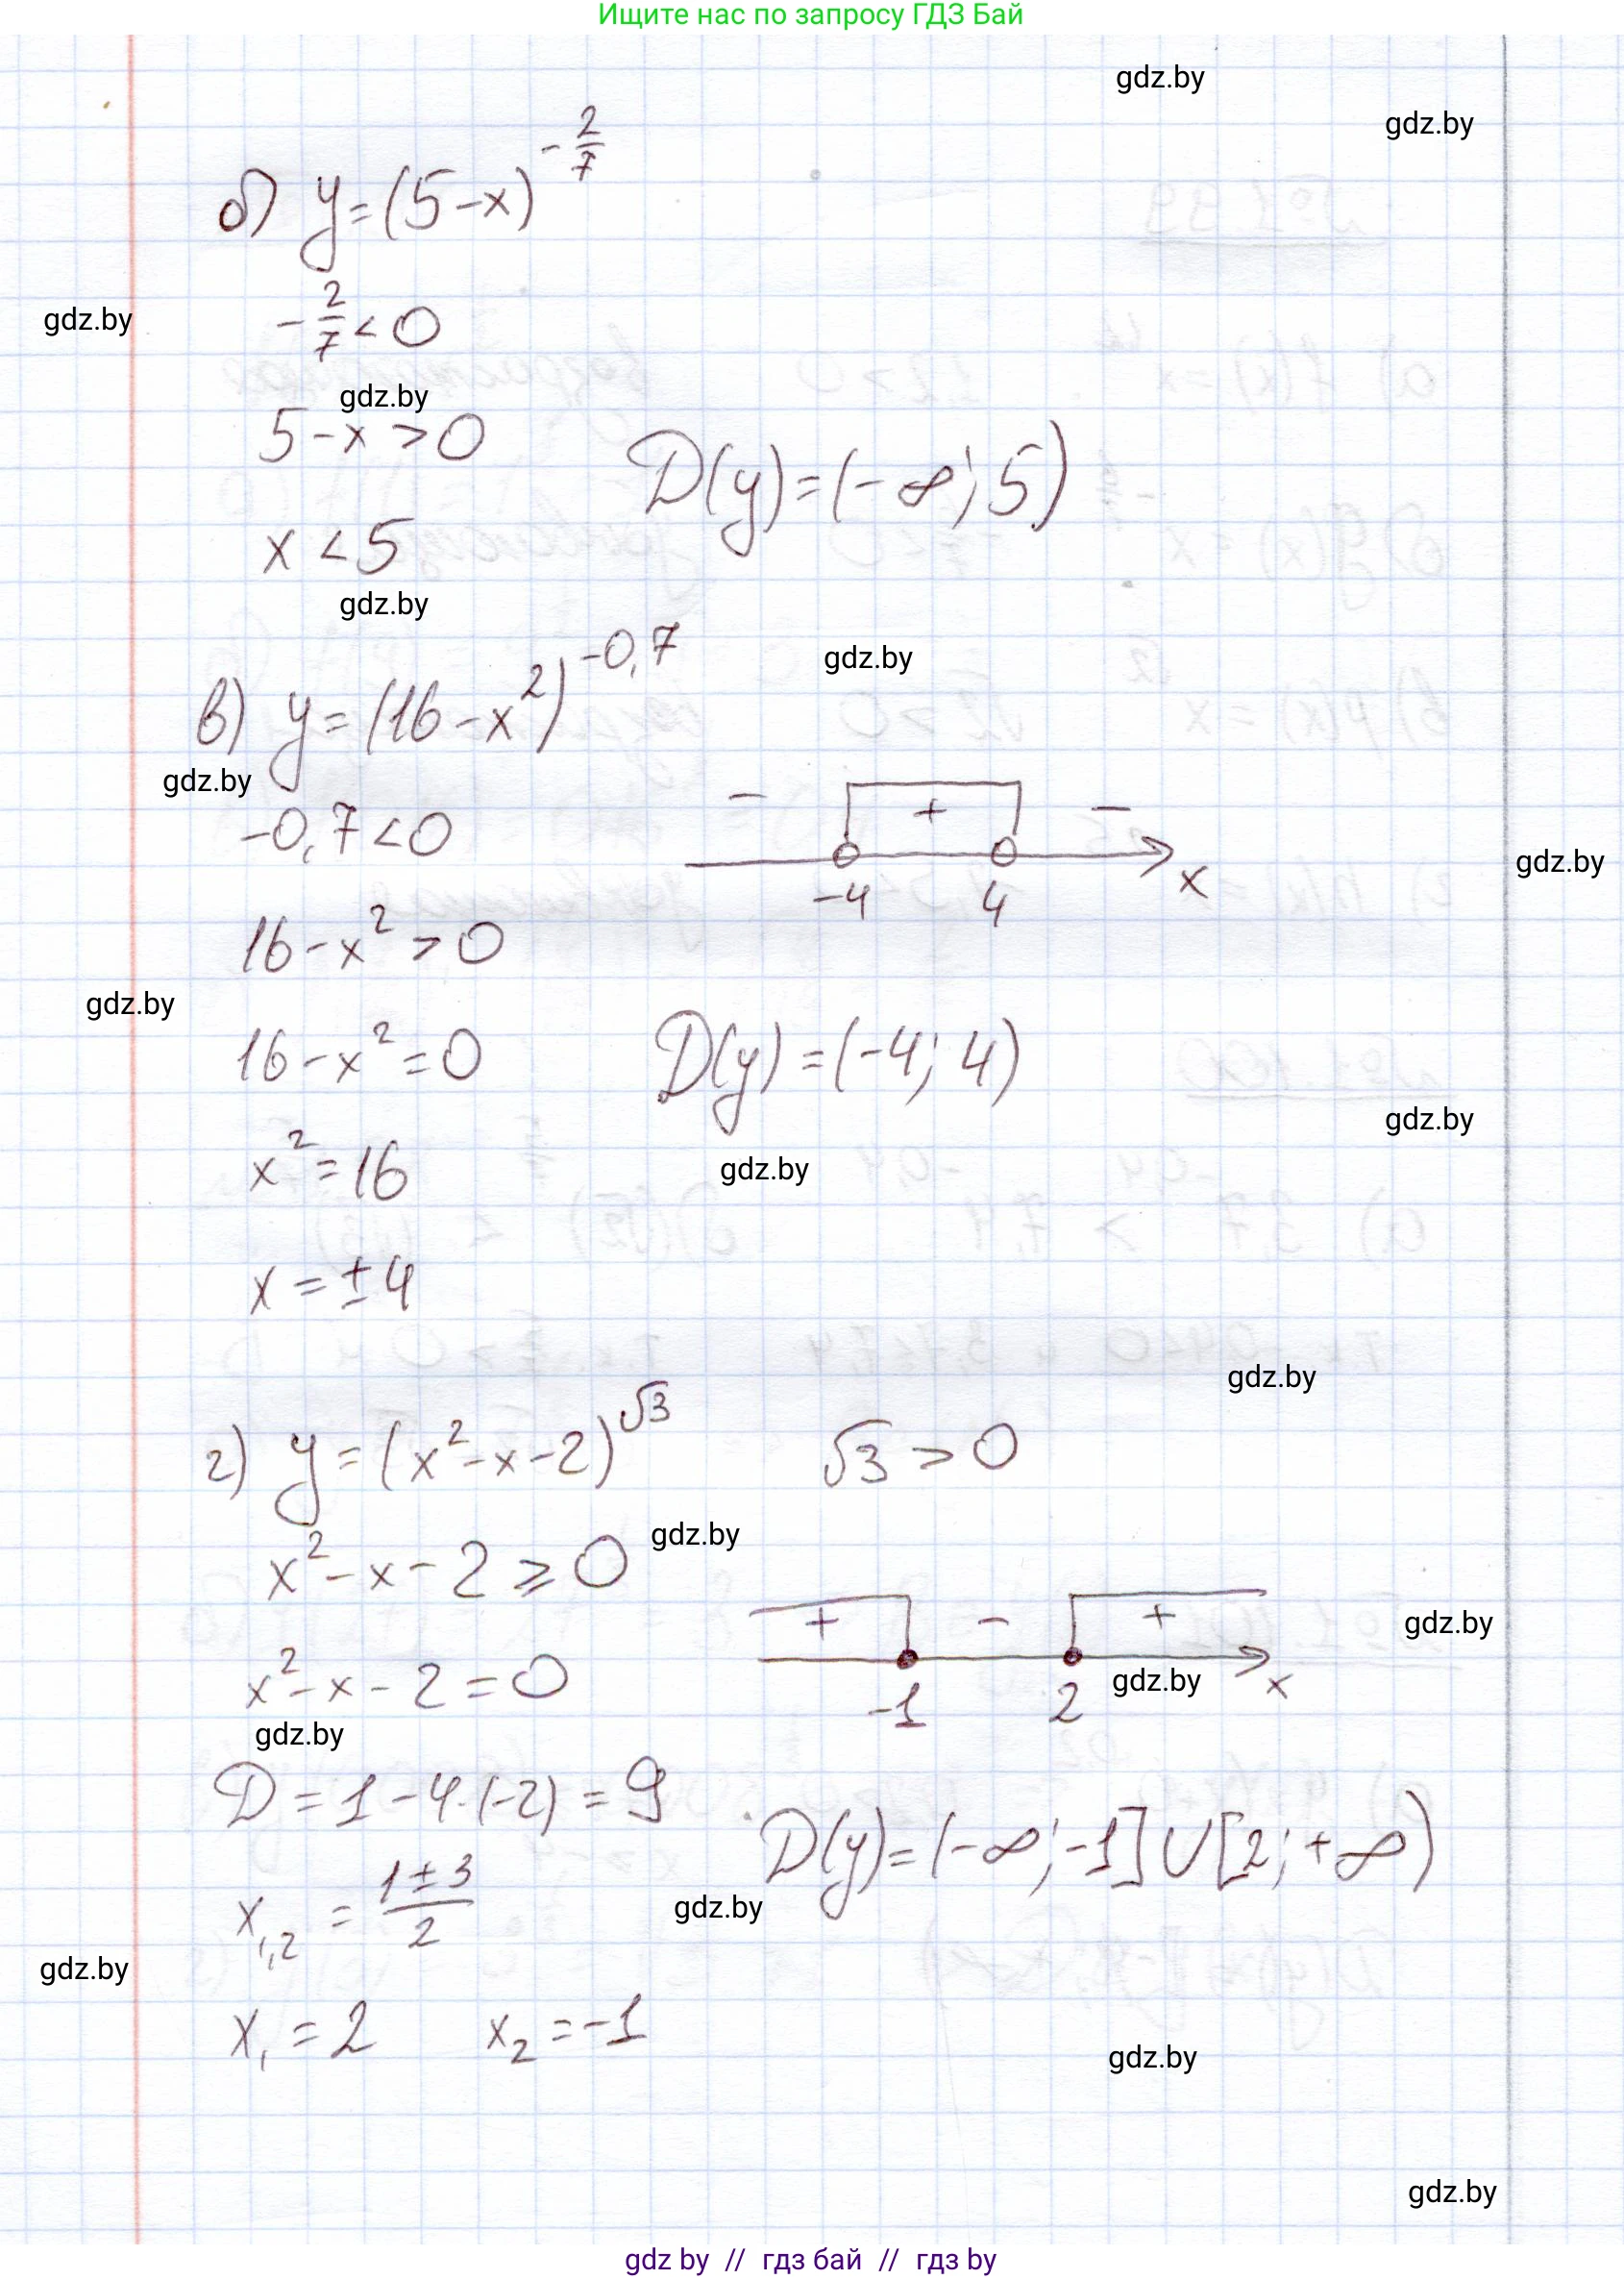 Ищите нас по запросу ГДЗ Бай
gdz.by
gdz.by
б) y = (5 - x)^{-2/7}
gdz.by
-2/7 < 0
gdz.by
5 - x > 0
D(y) = (-∞; 5)
x < 5
gdz.by
в) y = (16 - x²)^{-0,7}
gdz.by
gdz.by
-0,7 < 0
- + -
-4 4 x
gdz.by
16 - x² > 0
gdz.by
16 - x² = 0
D(y) = (-4; 4)
gdz.by
x² = 16
gdz.by
x = ±4
gdz.by
г) y = (x² - x - 2)^{√3}
√3 > 0
gdz.by
x² - x - 2 ⩾ 0
+ - +
gdz.by
x² - x - 2 = 0
-1 2 x
gdz.by
gdz.by
D = 1 - 4·(-2) = 9
D(y) = (-∞; -1] ∪ [2; +∞)
x₁,₂ = (1 ± 3)/2
gdz.by
gdz.by
x₁ = 2 x₂ = -1
gdz.by
gdz.by
gdz by // гдз бай // гдз by